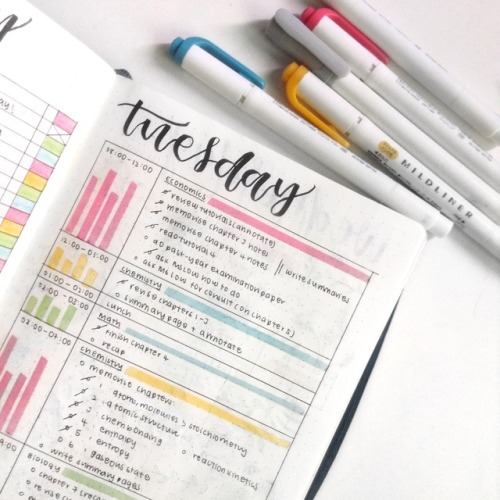 y
tuesday
MILDLINER
Economics
review tutorials (annotate)
memorise chapter 3 notes
memorise chapter 4 notes
read tutorial 4
go past-year examination paper
ask ms low how to do
ask ms low for consult (on chapter 5)
write summaries
12:00 - 01:00
chemistry
revise chapters 1-3
summary page + annotate
01:00 - 02:00
lunch
02:00 - 03:00
Math
finish chapter 4
recap
chemistry
memorise chapters:
1. atoms, molecules & stoichiometry
2. atomic structure
3. chem bonding
4. enthalpy
5. entropy
6. gaseous state
reaction kinetics
write summary pages
Biology